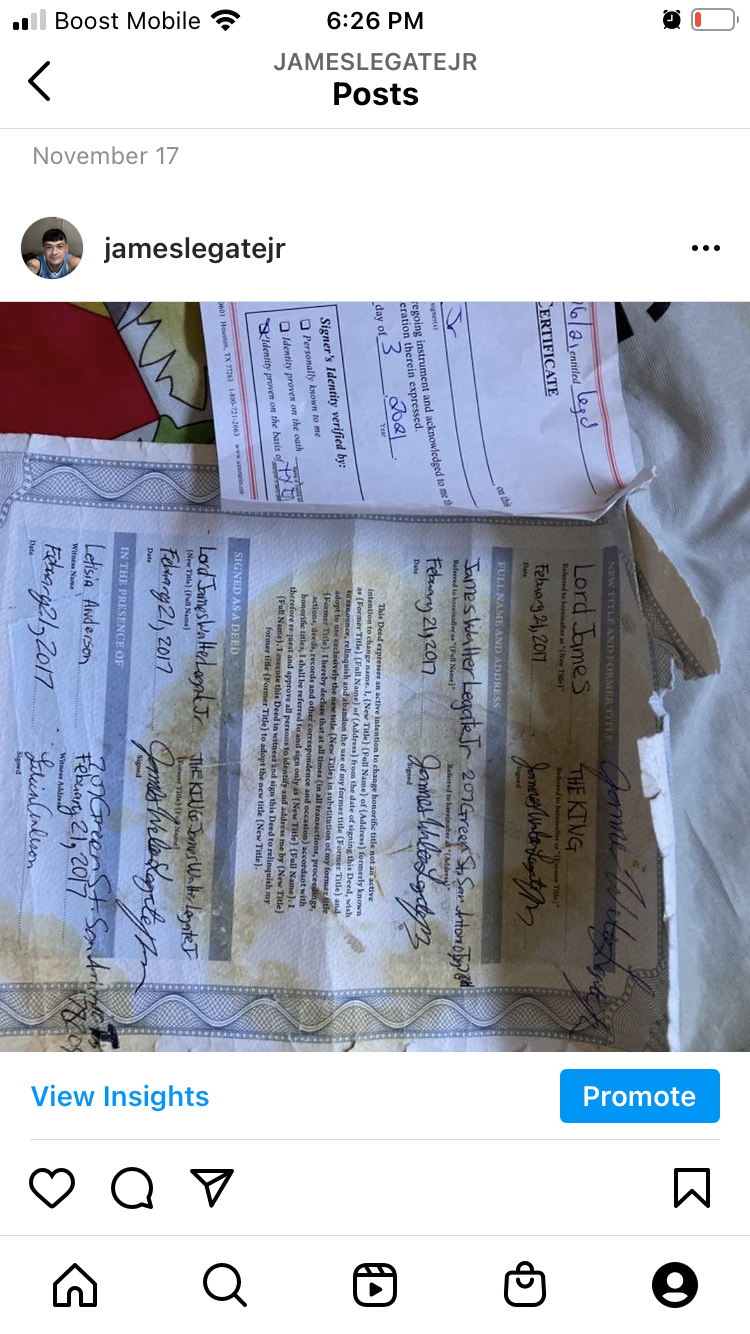 Boost Mobile
6:26 PM
JAMESLEGATEJR
Posts
November 17
jameslegatejr
16/21 entitled Legal
CERTIFICATE
on this
regoing instrument and acknowledged to me th
eration therein expressed.
day of 3 , 2021
Year
Signer's Identity verified by:
Personally known to me
Identity proven on the oath
Identity proven on the basis of
0601 Houston, TX 77263 1-800-721-2663
NEW TITLE AND FORMER TITLE
Lord James THE KING
Referred to hereinafter as "{New Title}" Referred to hereinafter as "{Former Title}"
February 21, 2017
Date Signed
FULL NAME AND ADDRESS
James Walter Legate Jr 207 Green St. San Antonio
Referred to hereinafter as "{Full Name}" Referred to hereinafter as "{Address}"
February 21, 2017
Date Signed
This Deed expresses an active intention to change honorific title not an active
intention to change name. I, {New Title} {Full Name} of {Address} formerly known
as {Former Title} {Full Name} of {Address} from the date of signing this Deed, wish
to renounce, relinquish and abandon the use of my former title {Former Title} and
adopt to use exclusively the new title {New Title} in substitution of my former title
{Former Title}. I hereby declare that at all times (in all transactions, proceedings,
actions, deeds, records and other correspondence and occasion) accordant with
honorific titles, I shall be referred to and sign only as {New Title} {Full Name}. I
therefore request and approve all persons to identify and address me by {New Title}
{Full Name}. I execute this Deed in witness and sign this Deed to relinquish my
former title {Former Title} to adopt the new title {New Title}.
SIGNED AS A DEED
Lord James Walter Legate Jr. THE KING James Walter Legate Jr
{New Title} {Full Name} {Former Title} {Full Name}
February 21, 2017
Date Signed
IN THE PRESENCE OF
Letisia Anderson 207 Green St. San Antonio
Witness Name Witness Address
February 21, 2017 February 21, 2017
Date Signed
View Insights
Promote